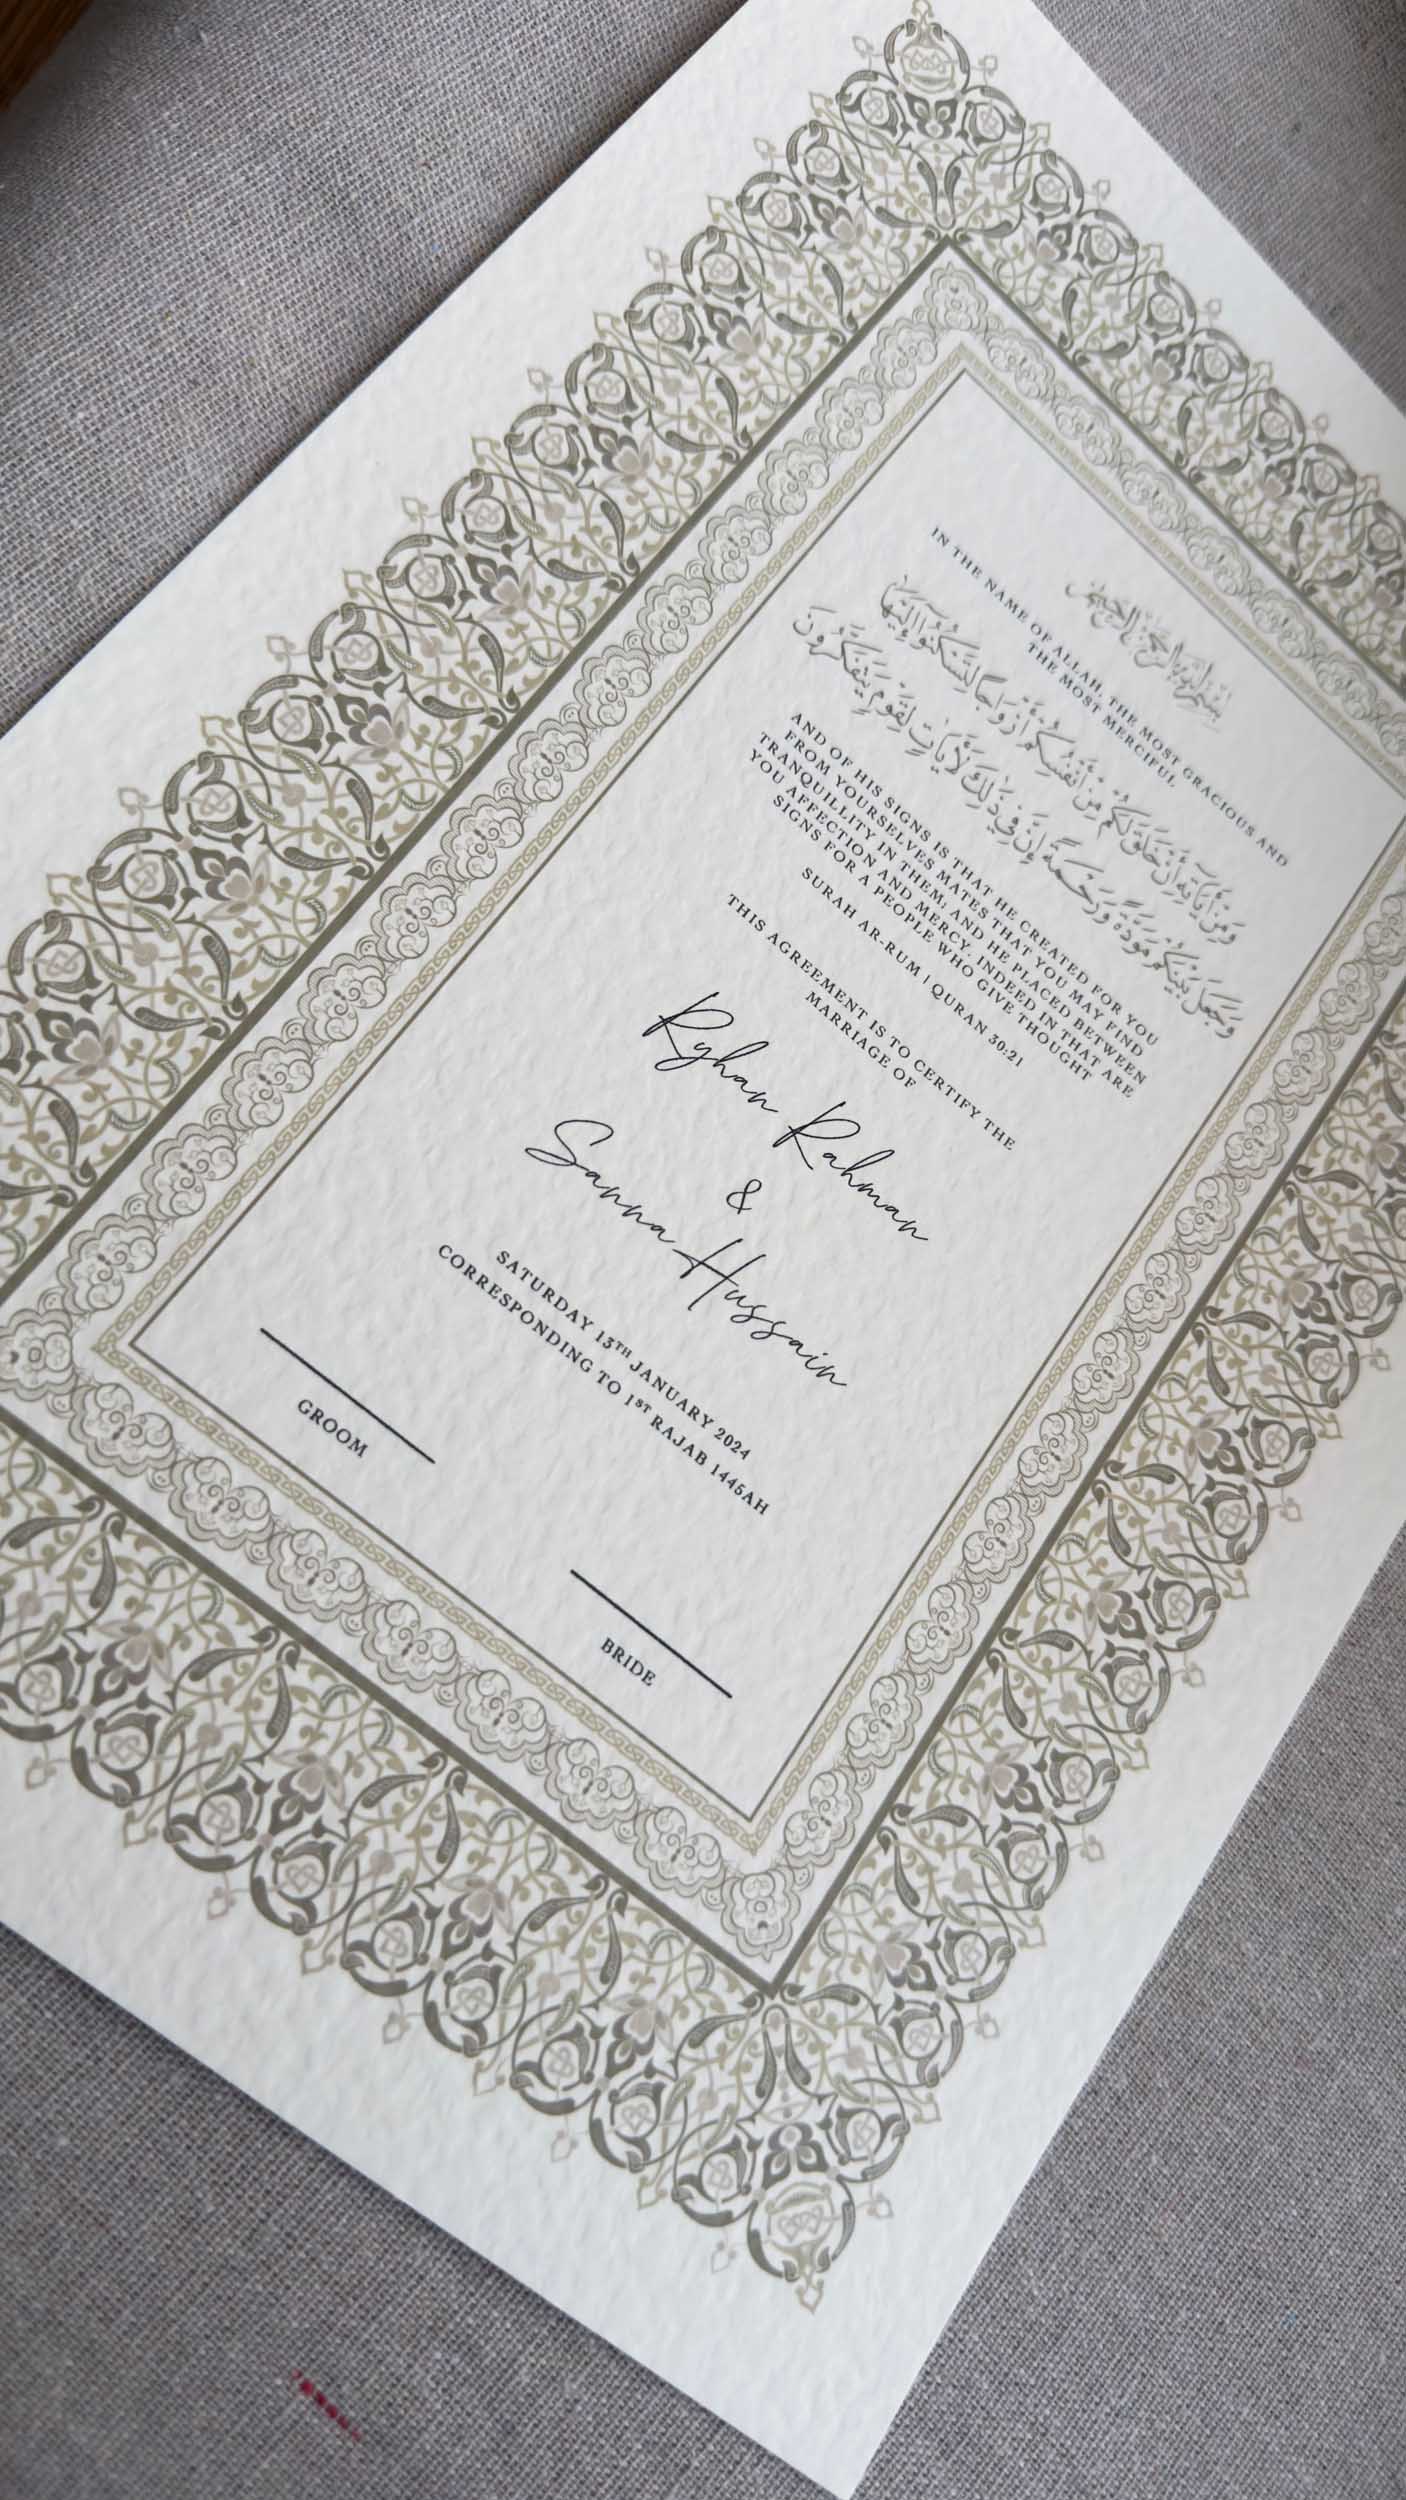 بِسْمِ اللَّهِ الرَّحْمَٰنِ الرَّحِيمِ
IN THE NAME OF ALLAH, THE MOST GRACIOUS AND
THE MOST MERCIFUL
وَمِنْ آيَاتِهِ أَنْ خَلَقَ لَكُم مِّنْ أَنفُسِكُمْ أَزْوَاجًا لِّتَسْكُنُوا إِلَيْهَا
وَجَعَلَ بَيْنَكُم مَّوَدَّةً وَرَحْمَةً إِنَّ فِي ذَٰلِكَ لَآيَاتٍ لِّقَوْمٍ يَتَفَكَّرُونَ
AND OF HIS SIGNS IS THAT HE CREATED FOR YOU
FROM YOURSELVES MATES THAT YOU MAY FIND
TRANQUILLITY IN THEM; AND HE PLACED BETWEEN
YOU AFFECTION AND MERCY. INDEED IN THAT ARE
SIGNS FOR A PEOPLE WHO GIVE THOUGHT
SURAH AR-RUM | QURAN 30:21
THIS AGREEMENT IS TO CERTIFY THE
MARRIAGE OF
Ryhan Rahman
&
Sanna Hussain
SATURDAY 13TH JANUARY 2024
CORRESPONDING TO 1ST RAJAB 1445AH
GROOM
BRIDE